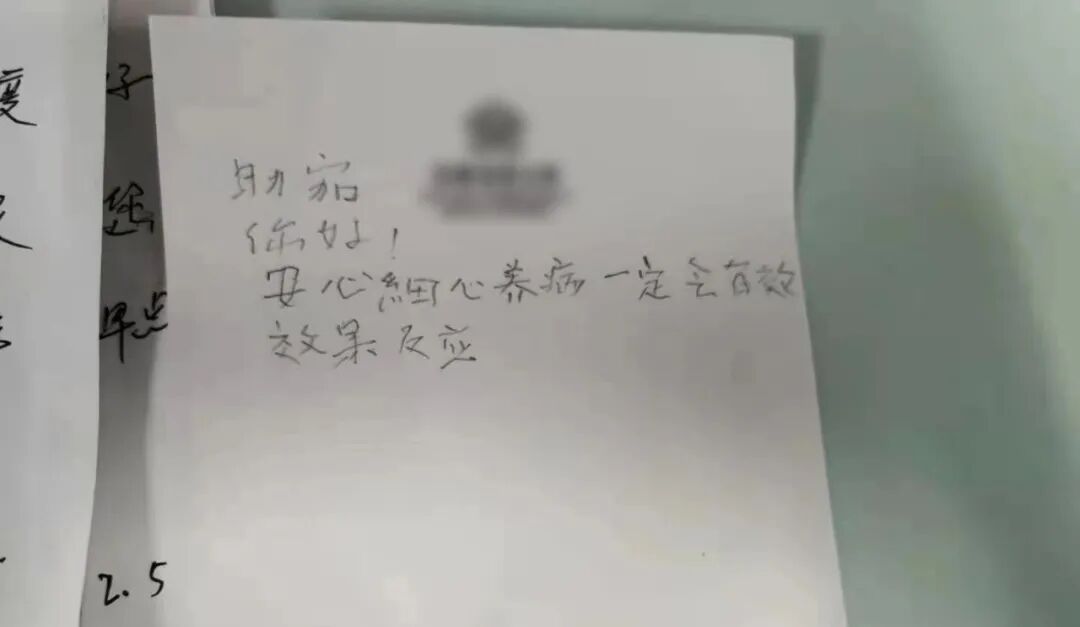 好
您
早点
2.5
你好！
安心細心养病一定会有效
效果反应